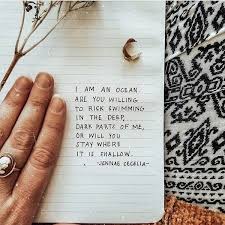 I AM AN OCEAN.
ARE YOU WILLING
TO RISK SWIMMING
IN THE DEEP,
DARK PARTS OF ME,
OR WILL YOU
STAY WHERE
IT IS SHALLOW.
-JENNAE CECELIA-